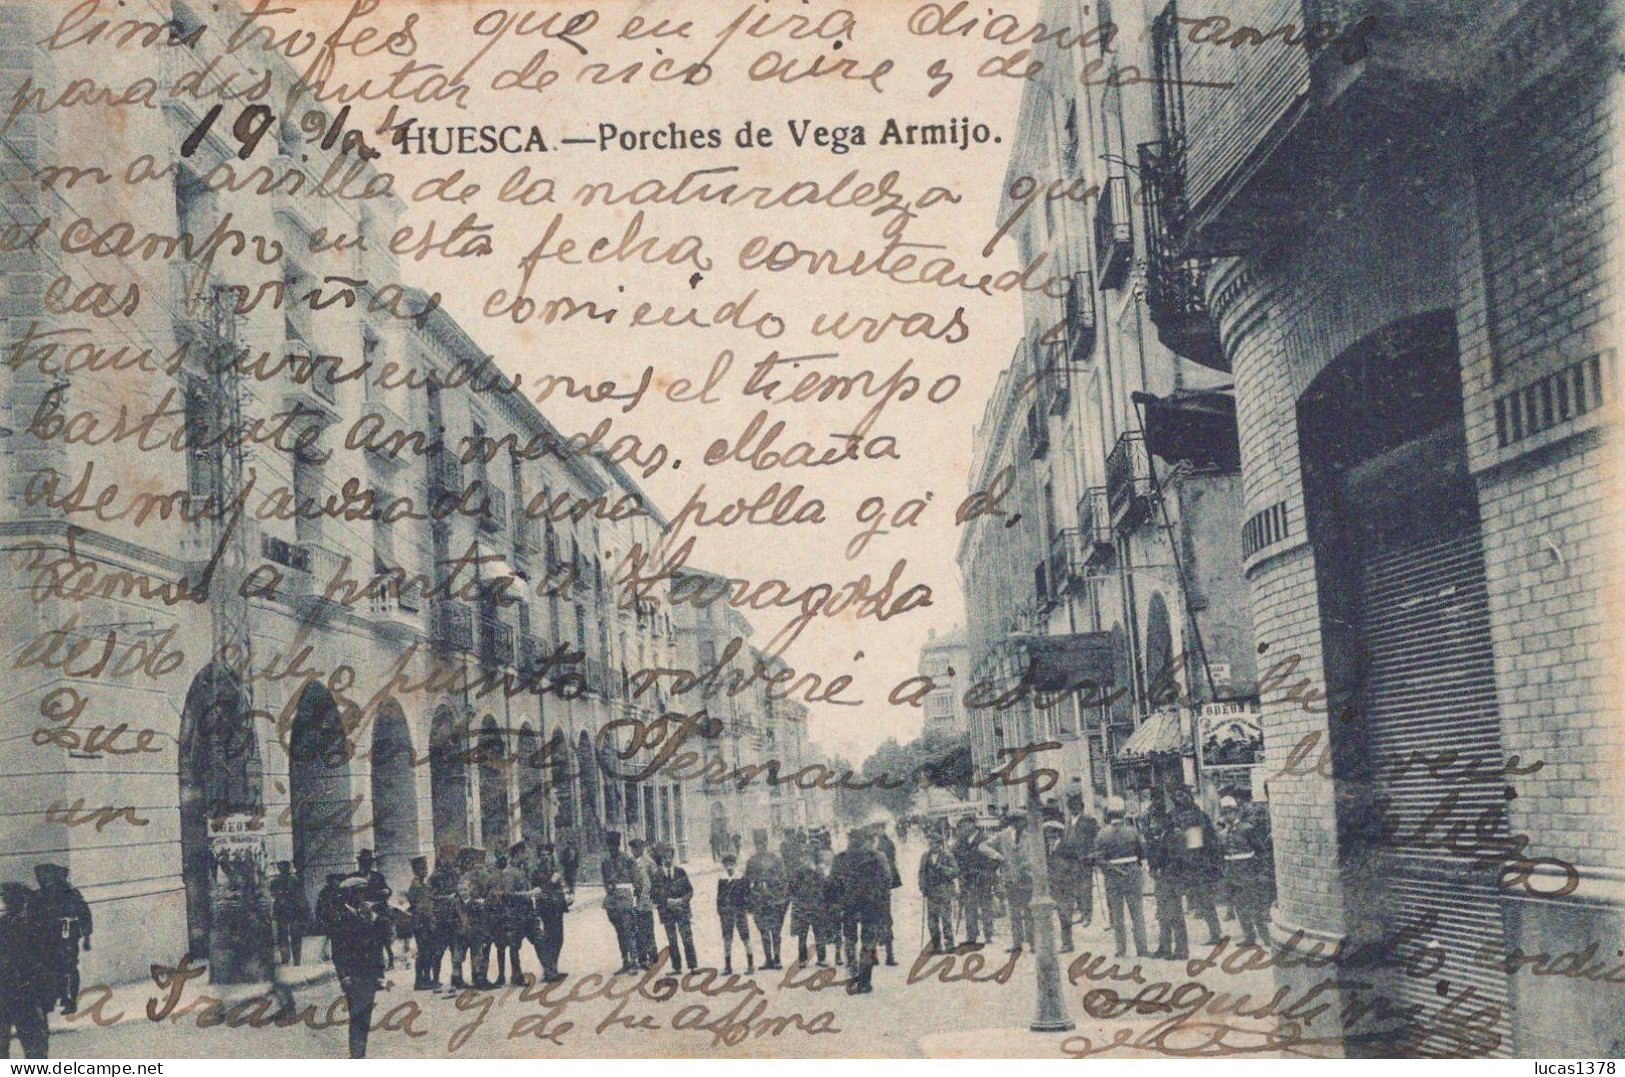 limitrofes que en jira diaria vamos
para disfrutar de rico aire y de la
19
HUESCA.—Porches de Vega Armijo.
maravilla de la naturalezza que
el campo en esta fecha
las viñas comiendo uvas y
transcurriendonos el tiempo
bastante animadas. Maña
asemejanza de una polla
a partir a Zaragoza
desde cuyo punto volveré a escribirlus.
Que Fernandito lleven
un
ODEON
ODEON
a Francia y reciban los tres un saludo cordial
de su afma Agustinita